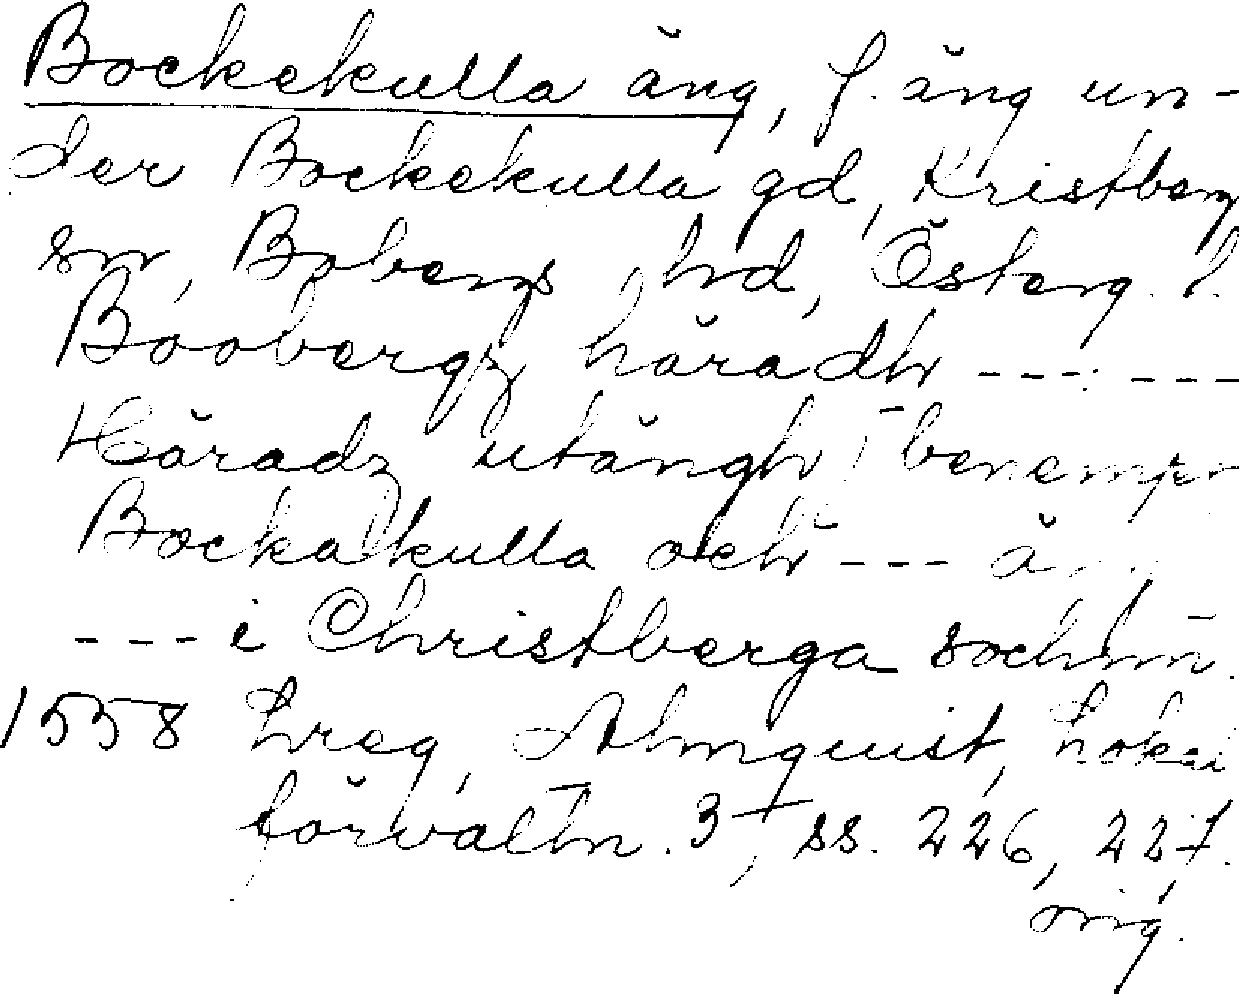 Bockekulla äng, f. äng un-
der Bockekulla gd, Kristberg
sn, Bobergs hd, Österg. l.
Boobergz häradh --- ---
Häradz utängh benempn
Bockakulla och --- än
--- i Christberga sochnn.
1558 hreg, Almquist, Lokal
förvaltn. 3, ss. 226, 227.
orig.